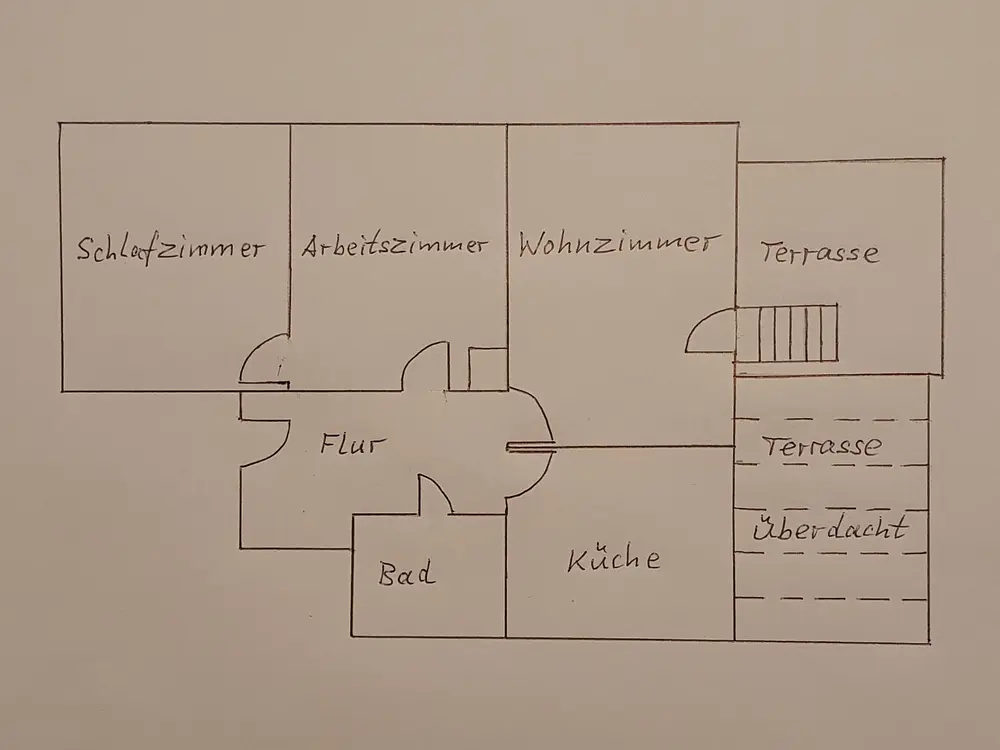 Schlafzimmer
Arbeitszimmer
Wohnzimmer
Terrasse
Flur
Terrasse
Überdacht
Bad
Küche